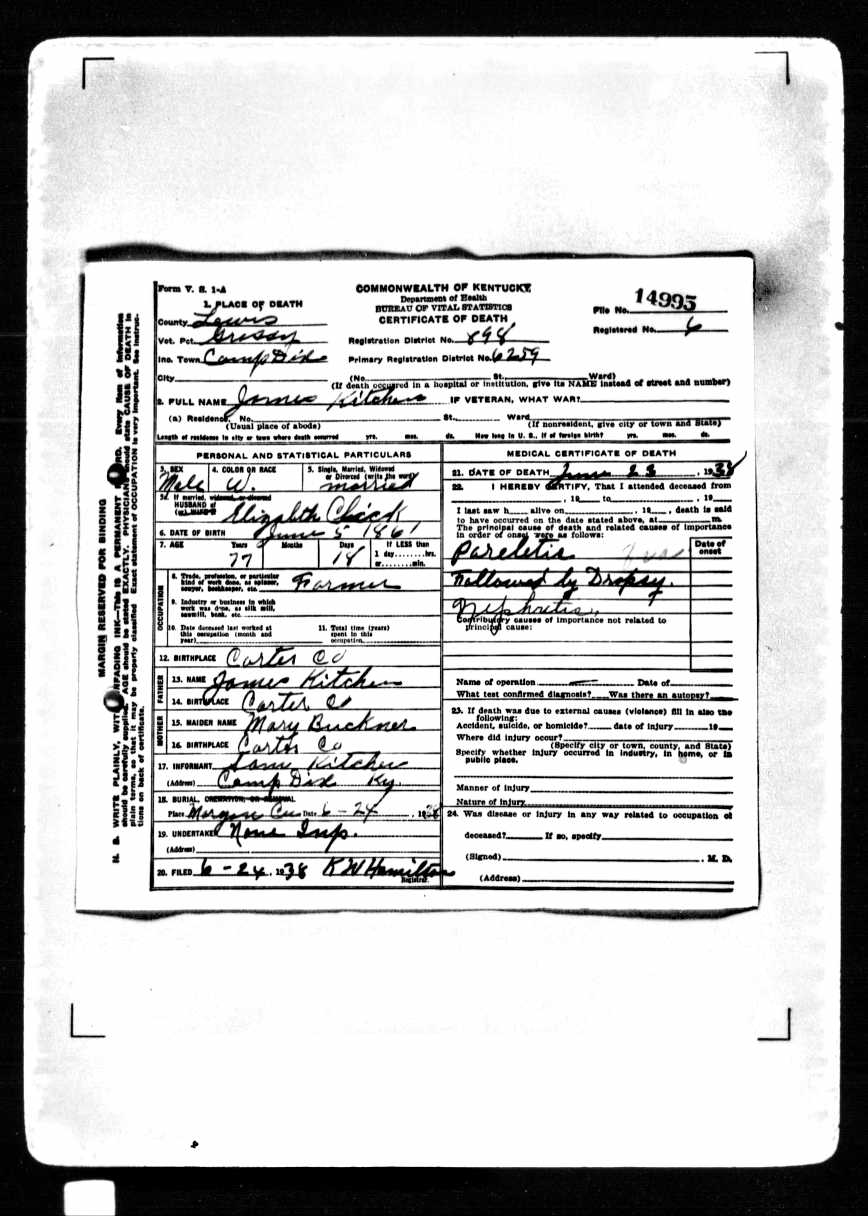 Form V. S. 1-A
COMMONWEALTH OF KENTUCKY
Department of Health
BUREAU OF VITAL STATISTICS
CERTIFICATE OF DEATH
File No. 14995
Registered No. 6
1. PLACE OF DEATH
County Lewis
Vot. Pct.
Registration District No. 898
Inc. Town Camp Dix
Primary Registration District No. 6259
City (No. St. Ward)
(If death occurred in a hospital or institution, give its NAME instead of street and number)
2. FULL NAME James Kitchen IF VETERAN, WHAT WAR?
(a) Residence, No. St. Ward
(Usual place of abode) (If nonresident, give city or town and State)
Length of residence in city or town where death occurred yrs. mos. ds. How long in U. S., if of foreign birth? yrs. mos. ds.
PERSONAL AND STATISTICAL PARTICULARS
3. SEX Male
4. COLOR OR RACE W.
5. Single, Married, Widowed or Divorced (write the word) married
5a. If married, widowed, or divorced
HUSBAND of
(or) WIFE of Elizabeth
6. DATE OF BIRTH June 5 1861
7. AGE Years 77 Months Days 18 If LESS than 1 day hrs. or min.
OCCUPATION
8. Trade, profession, or particular kind of work done, as spinner, sawyer, bookkeeper, etc. Farmer
9. Industry or business in which work was done, as silk mill, sawmill, bank, etc.
10. Date deceased last worked at this occupation (month and year)
11. Total time (years) spent in this occupation
12. BIRTHPLACE Carter Co
FATHER
13. NAME James Kitchen
14. BIRTHPLACE Carter Co
MOTHER
15. MAIDEN NAME Mary Buckner
16. BIRTHPLACE Carter Co
17. INFORMANT Sam Kitchen
(Address) Camp Dix Ky.
18. BURIAL, CREMATION, OR REMOVAL
Place Morgan Date 6-24, 1938
19. UNDERTAKER None
(Address)
20. FILED 6-24, 1938 K W Hamilton
Registrar.
MEDICAL CERTIFICATE OF DEATH
21. DATE OF DEATH June 23, 1938
22. I HEREBY CERTIFY, That I attended deceased from
, 19 to , 19
I last saw h alive on , 19 , death is said
to have occurred on the date stated above, at m.
The principal cause of death and related causes of importance
in order of onset were as follows:
Date of onset
Followed by Dropsy.
Nephritis
Contributory causes of importance not related to
principal cause:
Name of operation Date of
What test confirmed diagnosis? Was there an autopsy?
23. If death was due to external causes (violence) fill in also the
following:
Accident, suicide, or homicide? date of injury 19
Where did injury occur?
(Specify city or town, county, and State)
Specify whether injury occurred in industry, in home, or in
public place.
Manner of injury
Nature of injury
24. Was disease or injury in any way related to occupation of
deceased? If so, specify
(Signed) , M. D.
(Address)
MARGIN RESERVED FOR BINDING
N. B. WRITE PLAINLY, WITH UNFADING INK—This IS A PERMANENT RECORD. Every item of information
should be carefully supplied. AGE should be stated EXACTLY. PHYSICIANS should state CAUSE OF DEATH in
plain terms, so that it may be properly classified. Exact statement of OCCUPATION is very important. See instruc-
tions on back of certificate.